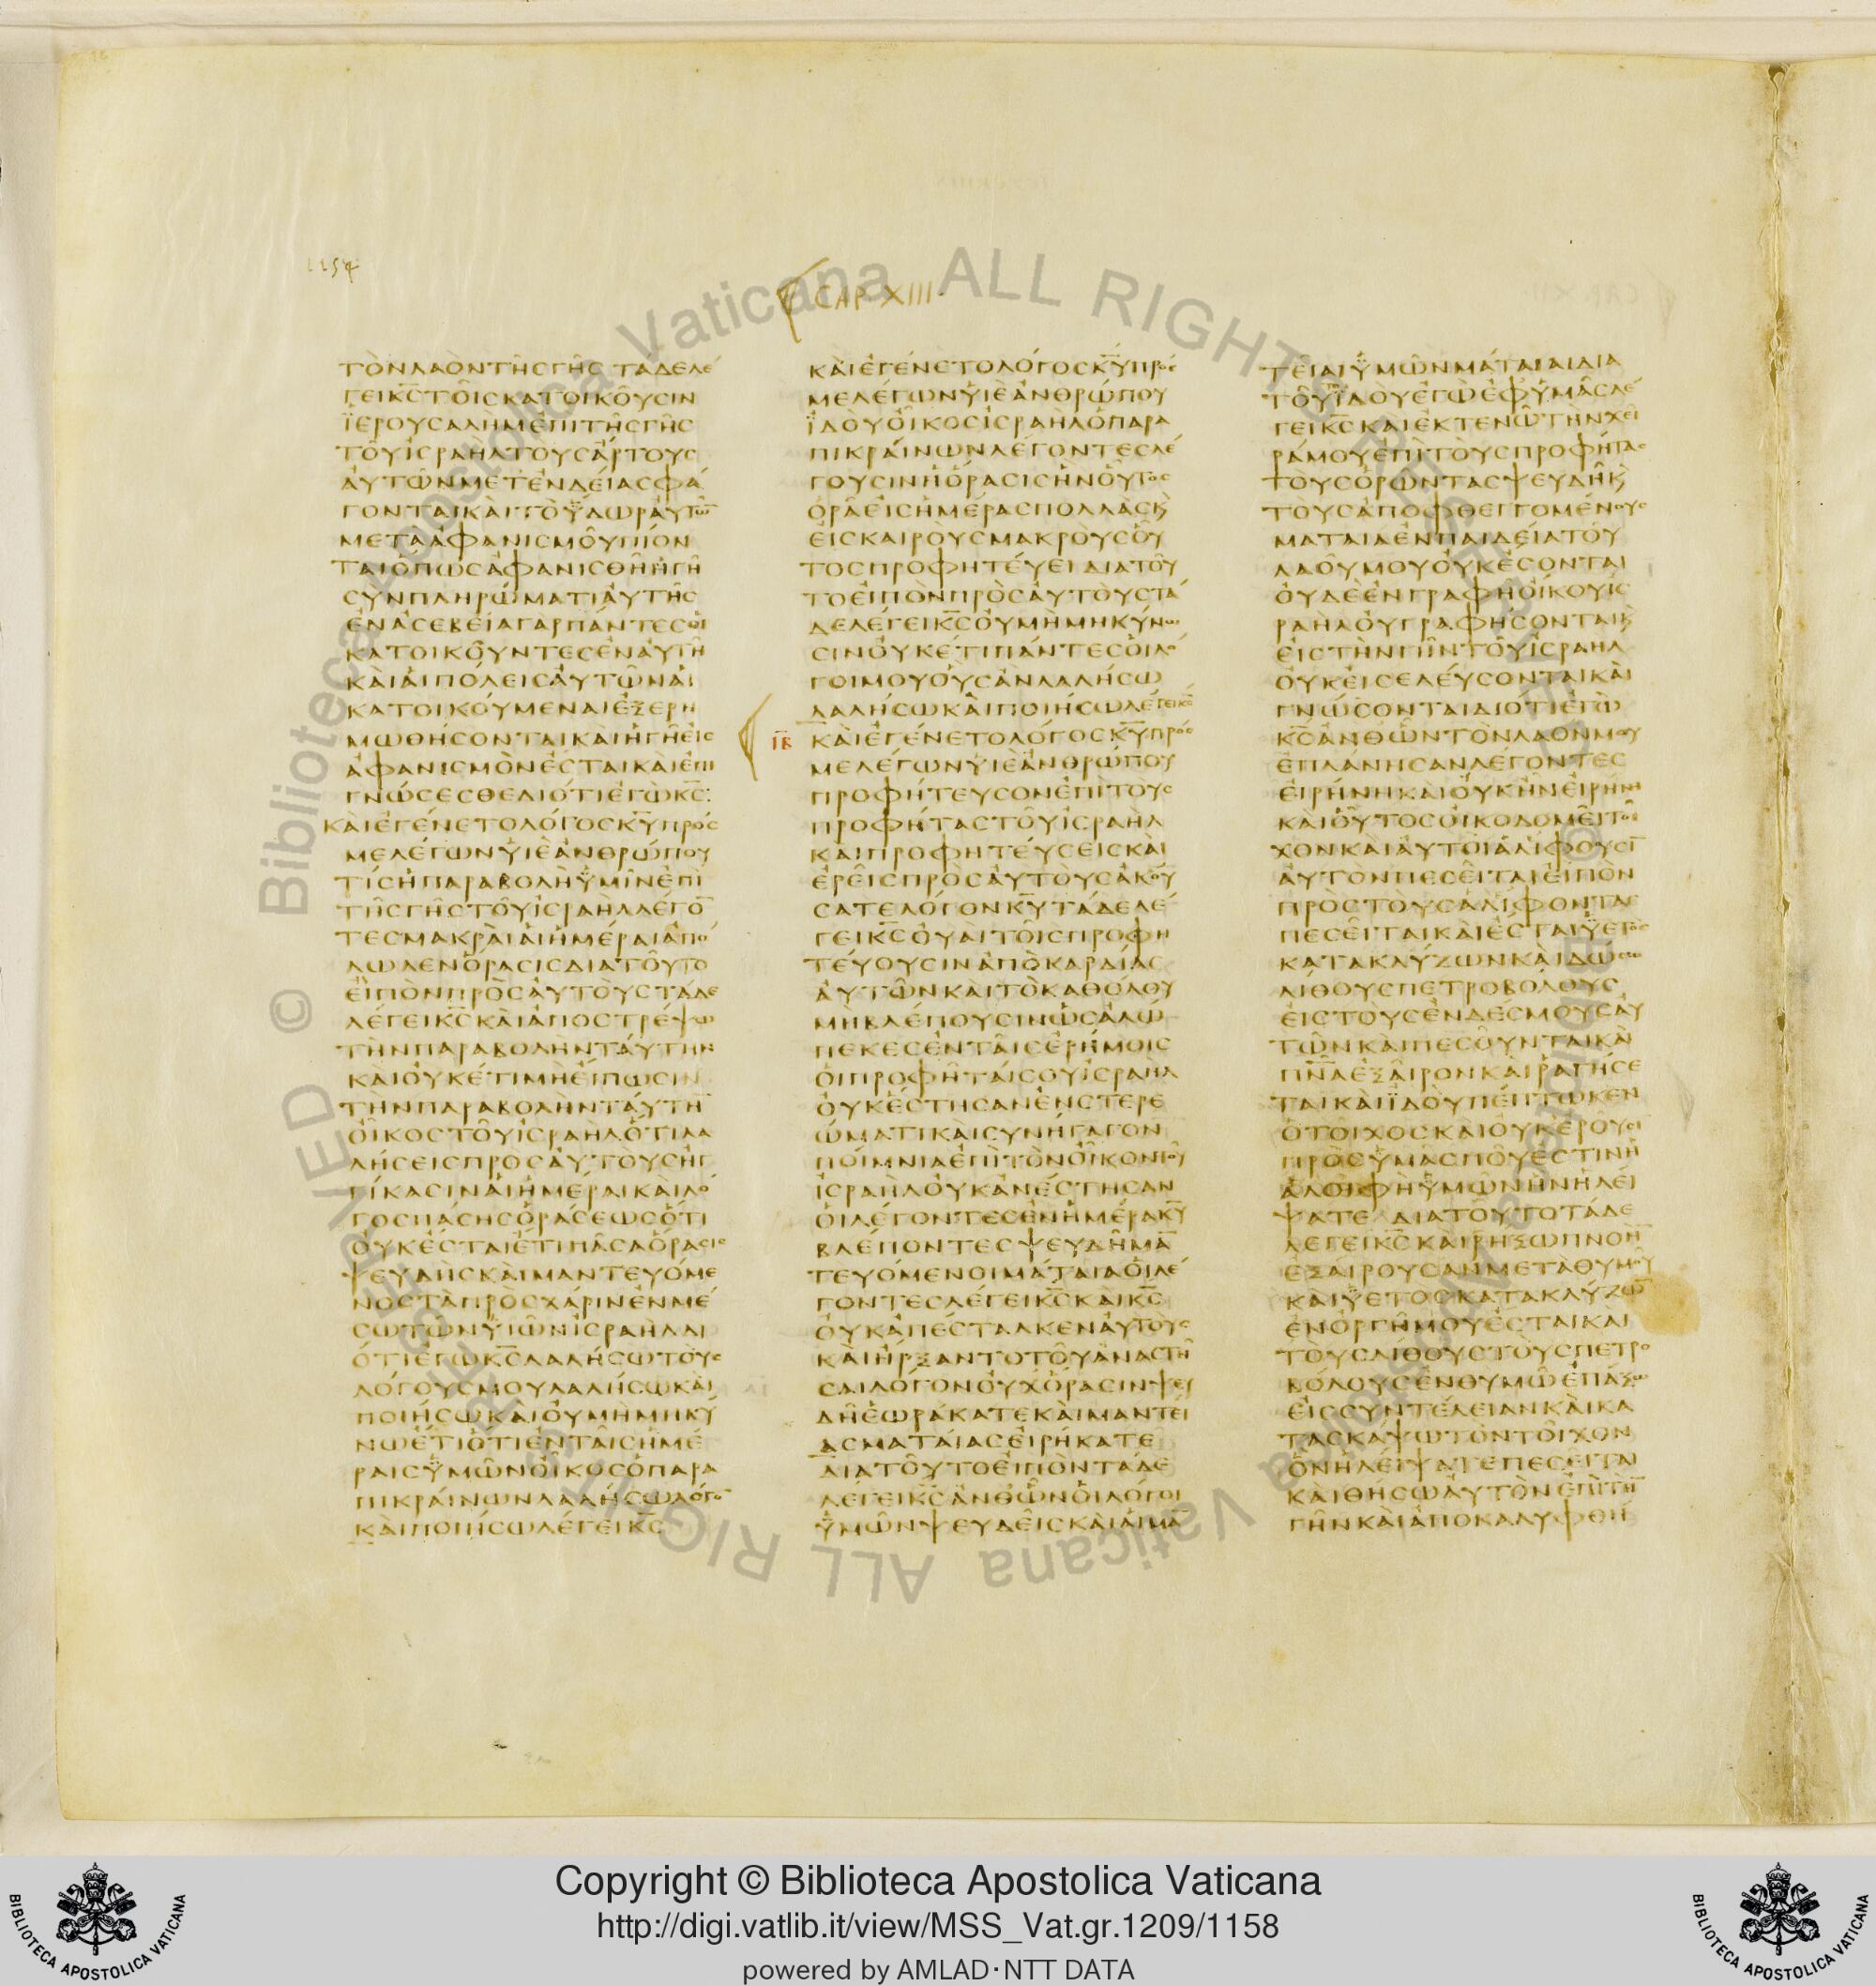 1254
CAP XIII
ΤΟΝΛΑΟΝΤΗϹΓΗϹ ΤΑΔΕΛΕ
ΓΕΙΚ̅Ϲ̅ΤΟΙϹΚΑΤΟΙΚΟΥϹΙΝ
ΪΕΡΟΥϹΑΛΗΜΕΠΙΤΗϹΓΗϹ
ΤΟΥΙϹΡΑΗΛΤΟΥϹΑΡΤΟΥϹ
ΑΥΤΩΝΜΕΤΕΝΔΕΙΑϹΦΑ
ΓΟΝΤΑΙΚΑΙΤΟΫΔΩΡΑΥΤΩ̅
ΜΕΤΑΑΦΑΝΙϹΜΟΥΠΙΟΝ
ΤΑΙΟΠΩϹΑΦΑΝΙϹΘΗΗΓΗ
ϹΥΝΠΛΗΡΩΜΑΤΙΑΥΤΗϹ
ΕΝΑϹΕΒΕΙΑΓΑΡΠΑΝΤΕϹΟΙ
ΚΑΤΟΙΚΟΥΝΤΕϹΕΝΑΥΤΗ
ΚΑΙΑΙΠΟΛΕΙϹΑΥΤΩΝΑΙ
ΚΑΤΟΙΚΟΥΜΕΝΑΙΕΞΕΡΗ
ΜΩΘΗϹΟΝΤΑΙΚΑΙΗΓΗΕΙϹ
ΑΦΑΝΙϹΜΟΝΕϹΤΑΙΚΑΙΕΠΙ
ΓΝΩϹΕϹΘΕΔΙΟΤΙΕΓΩΚ̅Ϲ̅:
ΚΑΙΕΓΕΝΕΤΟΛΟΓΟϹΚ̅Υ̅ΠΡΟϹ
ΜΕΛΕΓΩΝΥΙΕΑΝΘΡΩΠΟΥ
ΤΙϹΗΠΑΡΑΒΟΛΗΫΜΙΝΕΠΙ
ΤΗϹΓΗϹΤΟΥΙϹΡΑΗΛΛΕΓΟ̅
ΤΕϹΜΑΚΡΑΙΑΙΗΜΕΡΑΙΑΠΟ
ΛΩΛΕΝΟΡΑϹΙϹΔΙΑΤΟΥΤΟ
ΕΙΠΟΝΠΡΟϹΑΥΤΟΥϹΤΑΔΕ
ΛΕΓΕΙΚ̅Ϲ̅ΚΑΙΑΠΟϹΤΡΕΨΩ
ΤΗΝΠΑΡΑΒΟΛΗΝΤΑΥΤΗΝ
ΚΑΙΟΥΚΕΤΙΜΗΕΙΠΩϹΙΝ
ΤΗΝΠΑΡΑΒΟΛΗΝΤΑΥΤΗ̅
ΟΙΚΟϹΤΟΥΙϹΡΑΗΛΟΤΙΛΑ
ΛΗϹΕΙϹΠΡΟϹΑΥΤΟΥϹΗΓ
ΓΙΚΑϹΙΝΑΙΗΜΕΡΑΙΚΑΙΛΟ
ΓΟϹΠΑϹΗϹΟΡΑϹΕΩϹΟΤΙ
ΟΥΚΕϹΤΑΙΕΤΙΠΑϹΑΟΡΑϹΙϹ
ΨΕΥΔΗϹΚΑΙΜΑΝΤΕΥΟΜΕ
ΝΟϹΤΑΠΡΟϹΧΑΡΙΝΕΝΜΕ
ϹΩΤΩΝΥΙΩΝΙϹΡΑΗΛΔΙ
ΟΤΙΕΓΩΚ̅Ϲ̅ΛΑΛΗϹΩΤΟΥϹ
ΛΟΓΟΥϹΜΟΥΛΑΛΗϹΩΚΑΙ
ΠΟΙΗϹΩΚΑΙΟΥΜΗΜΗΚΥ
ΝΩΕΤΙΟΤΙΕΝΤΑΙϹΗΜΕ
ΡΑΙϹΫΜΩΝΟΙΚΟϹΟΠΑΡΑ
ΠΙΚΡΑΙΝΩΝΛΑΛΗϹΩΛΟΓΟ̅
ΚΑΙΠΟΙΗϹΩΛΕΓΕΙΚ̅Ϲ̅
ΚΑΙΕΓΕΝΕΤΟΛΟΓΟϹΚ̅Υ̅ΠΡΟϹ
ΜΕΛΕΓΩΝΥΙΕΑΝΘΡΩΠΟΥ
ΪΔΟΥΟΙΚΟϹΙϹΡΑΗΛΟΠΑΡΑ
ΠΙΚΡΑΙΝΩΝΛΕΓΟΝΤΕϹΛΕ
ΓΟΥϹΙΝΗΟΡΑϹΙϹΗΝΟΥΤΟϹ
ΟΡΑΕΙϹΗΜΕΡΑϹΠΟΛΛΑϹΚϗ
ΕΙϹΚΑΙΡΟΥϹΜΑΚΡΟΥϹΟΥ
ΤΟϹΠΡΟΦΗΤΕΥΕΙΔΙΑΤΟΥ
ΤΟΕΙΠΟΝΠΡΟϹΑΥΤΟΥϹΤΑ
ΔΕΛΕΓΕΙΚ̅Ϲ̅ΟΥΜΗΜΗΚΥΝΩ
ϹΙΝΟΥΚΕΤΙΠΑΝΤΕϹΟΙΛΟ
ΓΟΙΜΟΥΟΥϹΑΝΛΑΛΗϹΩ
ΛΑΛΗϹΩΚΑΙΠΟΙΗϹΩΛΕΓΕΙΚ̅Ϲ̅
ΙΒ ΚΑΙΕΓΕΝΕΤΟΛΟΓΟϹΚ̅Υ̅ΠΡΟϹ
ΜΕΛΕΓΩΝΥΙΕΑΝΘΡΩΠΟΥ
ΠΡΟΦΗΤΕΥϹΟΝΕΠΙΤΟΥϹ
ΠΡΟΦΗΤΑϹΤΟΥΙϹΡΑΗΛ
ΚΑΙΠΡΟΦΗΤΕΥϹΕΙϹΚΑΙ
ΕΡΕΙϹΠΡΟϹΑΥΤΟΥϹΑΚΟΥ
ϹΑΤΕΛΟΓΟΝΚ̅Υ̅ΤΑΔΕΛΕ
ΓΕΙΚ̅Ϲ̅ΟΥΑΙΤΟΙϹΠΡΟΦΗ
ΤΕΥΟΥϹΙΝΑΠΟΚΑΡΔΙΑϹ
ΑΥΤΩΝΚΑΙΤΟΚΑΘΟΛΟΥ
ΜΗΒΛΕΠΟΥϹΙΝΩϹΑΛΩ
ΠΕΚΕϹΕΝΤΑΙϹΕΡΗΜΟΙϹ
ΟΙΠΡΟΦΗΤΑΙϹΟΥΙϹΡΑΗΛ
ΟΥΚΕϹΤΗϹΑΝΕΝϹΤΕΡΕ
ΩΜΑΤΙΚΑΙϹΥΝΗΓΑΓΟΝ
ΠΟΙΜΝΙΑΕΠΙΤΟΝΟΙΚΟΝΤΟΥ
ΙϹΡΑΗΛΟΥΚΑΝΕϹΤΗϹΑΝ
ΟΙΛΕΓΟΝΤΕϹΕΝΗΜΕΡΑΚ̅Υ̅
ΒΛΕΠΟΝΤΕϹΨΕΥΔΗΜΑ̅
ΤΕΥΟΜΕΝΟΙΜΑΤΑΙΑΟΙΛΕ
ΓΟΝΤΕϹΛΕΓΕΙΚ̅Ϲ̅ΚΑΙΚ̅Ϲ̅
ΟΥΚΑΠΕϹΤΑΛΚΕΝΑΥΤΟΥϹ
ΚΑΙΗΡΞΑΝΤΟΤΟΥΑΝΑϹΤΗ
ϹΑΙΛΟΓΟΝΟΥΧΟΡΑϹΙΝΨΕΥ
ΔΗΕΩΡΑΚΑΤΕΚΑΙΜΑΝΤΕΙ
ΑϹΜΑΤΑΙΑϹΕΙΡΗΚΑΤΕ
ΔΙΑΤΟΥΤΟΕΙΠΟΝΤΑΔΕ
ΛΕΓΕΙΚ̅Ϲ̅ΑΝΘΩΝΟΙΛΟΓΟΙ
ΫΜΩΝΨΕΥΔΕΙϹΚΑΙΑΙΜΑ̅
ΤΕΙΑΙΫΜΩΝΜΑΤΑΙΑΙΔΙΑ
ΤΟΥΪΔΟΥΕΓΩΕΦΫΜΑϹΛΕ
ΓΕΙΚ̅Ϲ̅ΚΑΙΕΚΤΕΝΩΤΗΝΧΕΙ
ΡΑΜΟΥΕΠΙΤΟΥϹΠΡΟΦΗΤΑϹ
ΤΟΥϹΟΡΩΝΤΑϹΨΕΥΔΗΚϗ
ΤΟΥϹΑΠΟΦΘΕΓΓΟΜΕΝΟΥϹ
ΜΑΤΑΙΑΕΝΠΑΙΔΕΙΑΤΟΥ
ΛΑΟΥΜΟΥΟΥΚΕϹΟΝΤΑΙ
ΟΥΔΕΕΝΓΡΑΦΗΟΙΚΟΥΙϹ
ΡΑΗΛΟΥΓΡΑΦΗϹΟΝΤΑΙΚϗ
ΕΙϹΤΗΝΓΗΝΤΟΥΙϹΡΑΗΛ
ΟΥΚΕΙϹΕΛΕΥϹΟΝΤΑΙΚΑΙ
ΓΝΩϹΟΝΤΑΙΔΙΟΤΙΕΓΩ
Κ̅Ϲ̅ΑΝΘΩΝΤΟΝΛΑΟΝΜΟΥ
ΕΠΛΑΝΗϹΑΝΛΕΓΟΝΤΕϹ
ΕΙΡΗΝΗΚΑΙΟΥΚΗΝΕΙΡΗΝΗ
ΚΑΙΟΥΤΟϹΟΙΚΟΔΟΜΕΙΤΟΙ
ΧΟΝΚΑΙΑΥΤΟΙΑΛΙΦΟΥϹΙ̅
ΑΥΤΟΝΠΕϹΕΙΤΑΙΕΙΠΟΝ
ΠΡΟϹΤΟΥϹΑΛΙΦΟΝΤΑϹ
ΠΕϹΕΙΤΑΙΚΑΙΕϹΤΑΙΫΕΤΟϹ
ΚΑΤΑΚΛΥΖΩΝΚΑΙΔΩϹΩ
ΛΙΘΟΥϹΠΕΤΡΟΒΟΛΟΥϹ
ΕΙϹΤΟΥϹΕΝΔΕϹΜΟΥϹΑΥ
ΤΩΝΚΑΙΠΕϹΟΥΝΤΑΙΚΑΙ
Π̅Ν̅Α̅ΕΞΑΙΡΟΝΚΑΙΡΑΓΗϹΕ
ΤΑΙΚΑΙΪΔΟΥΠΕΠΤΩΚΕΝ
ΟΤΟΙΧΟϹΚΑΙΟΥΚΕΡΟΥϹΙ
ΠΡΟϹΫΜΑϹΠΟΥΕϹΤΙΝΗ
ΑΛΟΙΦΗΫΜΩΝΗΝΗΛΕΙ
ΨΑΤΕ ΔΙΑΤΟΥΤΟΤΑΔΕ
ΛΕΓΕΙΚ̅Ϲ̅ΚΑΙΡΗΞΩΠΝΟΗ̅
ΕΞΑΙΡΟΥϹΑΝΜΕΤΑΘΥΜΟΥ
ΚΑΙΫΕΤΟϹΚΑΤΑΚΛΥΖΩ̅
ΕΝΟΡΓΗΜΟΥΕϹΤΑΙΚΑΙ
ΤΟΥϹΛΙΘΟΥϹΤΟΥϹΠΕΤΡΟ
ΒΟΛΟΥϹΕΝΘΥΜΩΕΠΑΞΩ
ΕΙϹϹΥΝΤΕΛΕΙΑΝΚΑΙΚΑ
ΤΑϹΚΑΨΩΤΟΝΤΟΙΧΟΝ
ΟΝΗΛΕΙΨΑΤΕΠΕϹΕΙΤΑΙ
ΚΑΙΘΗϹΩΑΥΤΟΝΕΠΙΤΗ̅
ΓΗΝΚΑΙΑΠΟΚΑΛΥΦΘΗ
© Biblioteca Apostolica Vaticana ALL RIGHTS RESERVED
© Biblioteca Apostolica Vaticana ALL RIGHTS RESERVED
Copyright © Biblioteca Apostolica Vaticana
http://digi.vatlib.it/view/MSS_Vat.gr.1209/1158
powered by AMLAD·NTT DATA
BIBLIOTECA APOSTOLICA VATICANA
BIBLIOTECA APOSTOLICA VATICANA